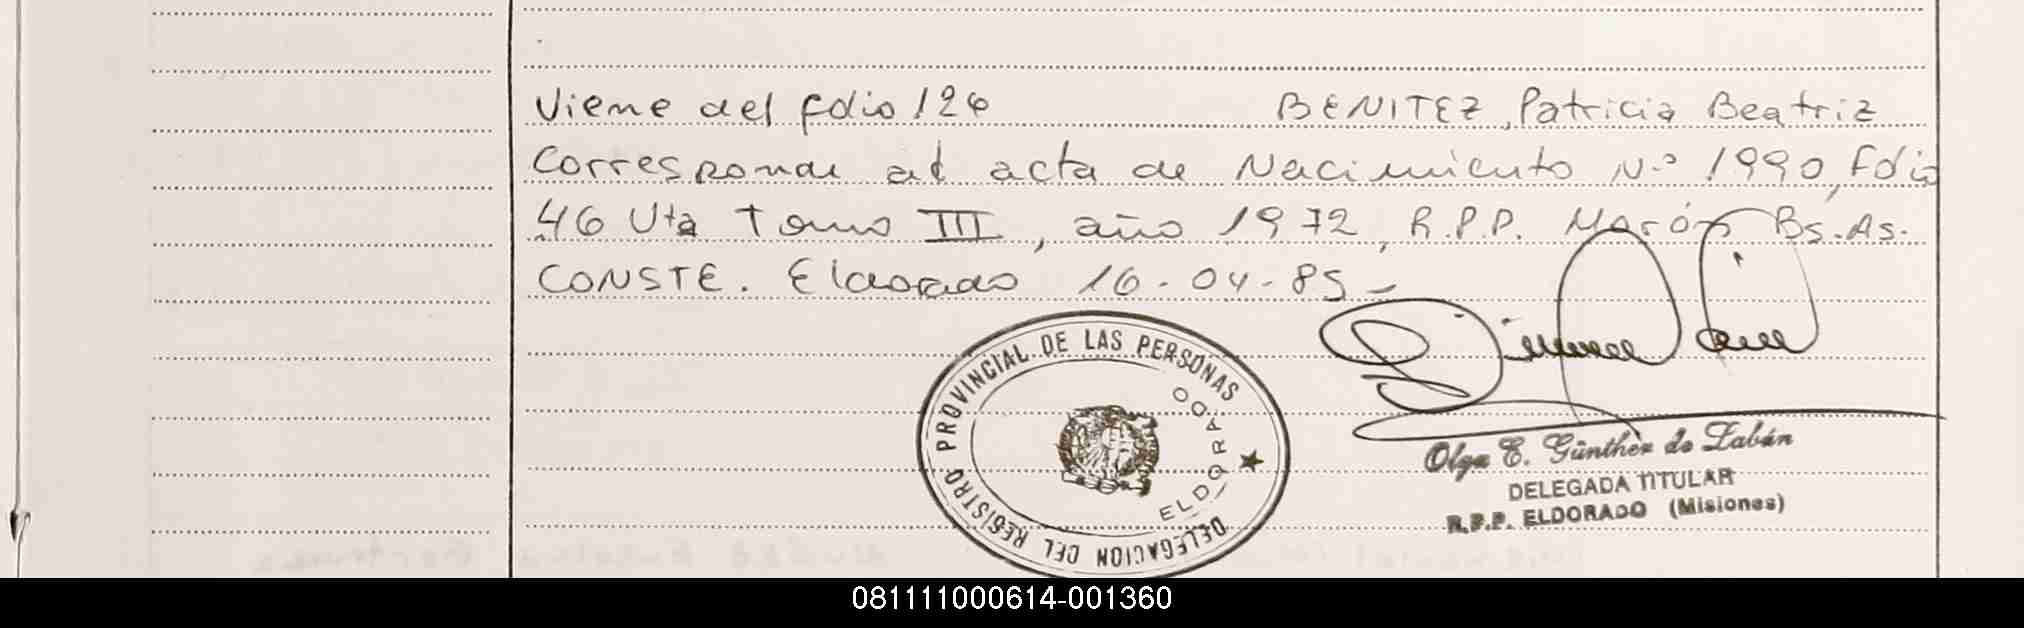 Viene del folio 126 BENITEZ, Patricia Beatriz
Corresponde al acta de Nacimiento Nº 1990, Folio
46 Vta Tomo III, año 1972, R.P.P. Morón Bs.As.
CONSTE. Eldorado 16-04-85-
DELEGACION DEL REGISTRO PROVINCIAL DE LAS PERSONAS
ELDORADO
Olga E. Günther de Labán
DELEGADA TITULAR
R.P.P. ELDORADO (Misiones)
081111000614-001360